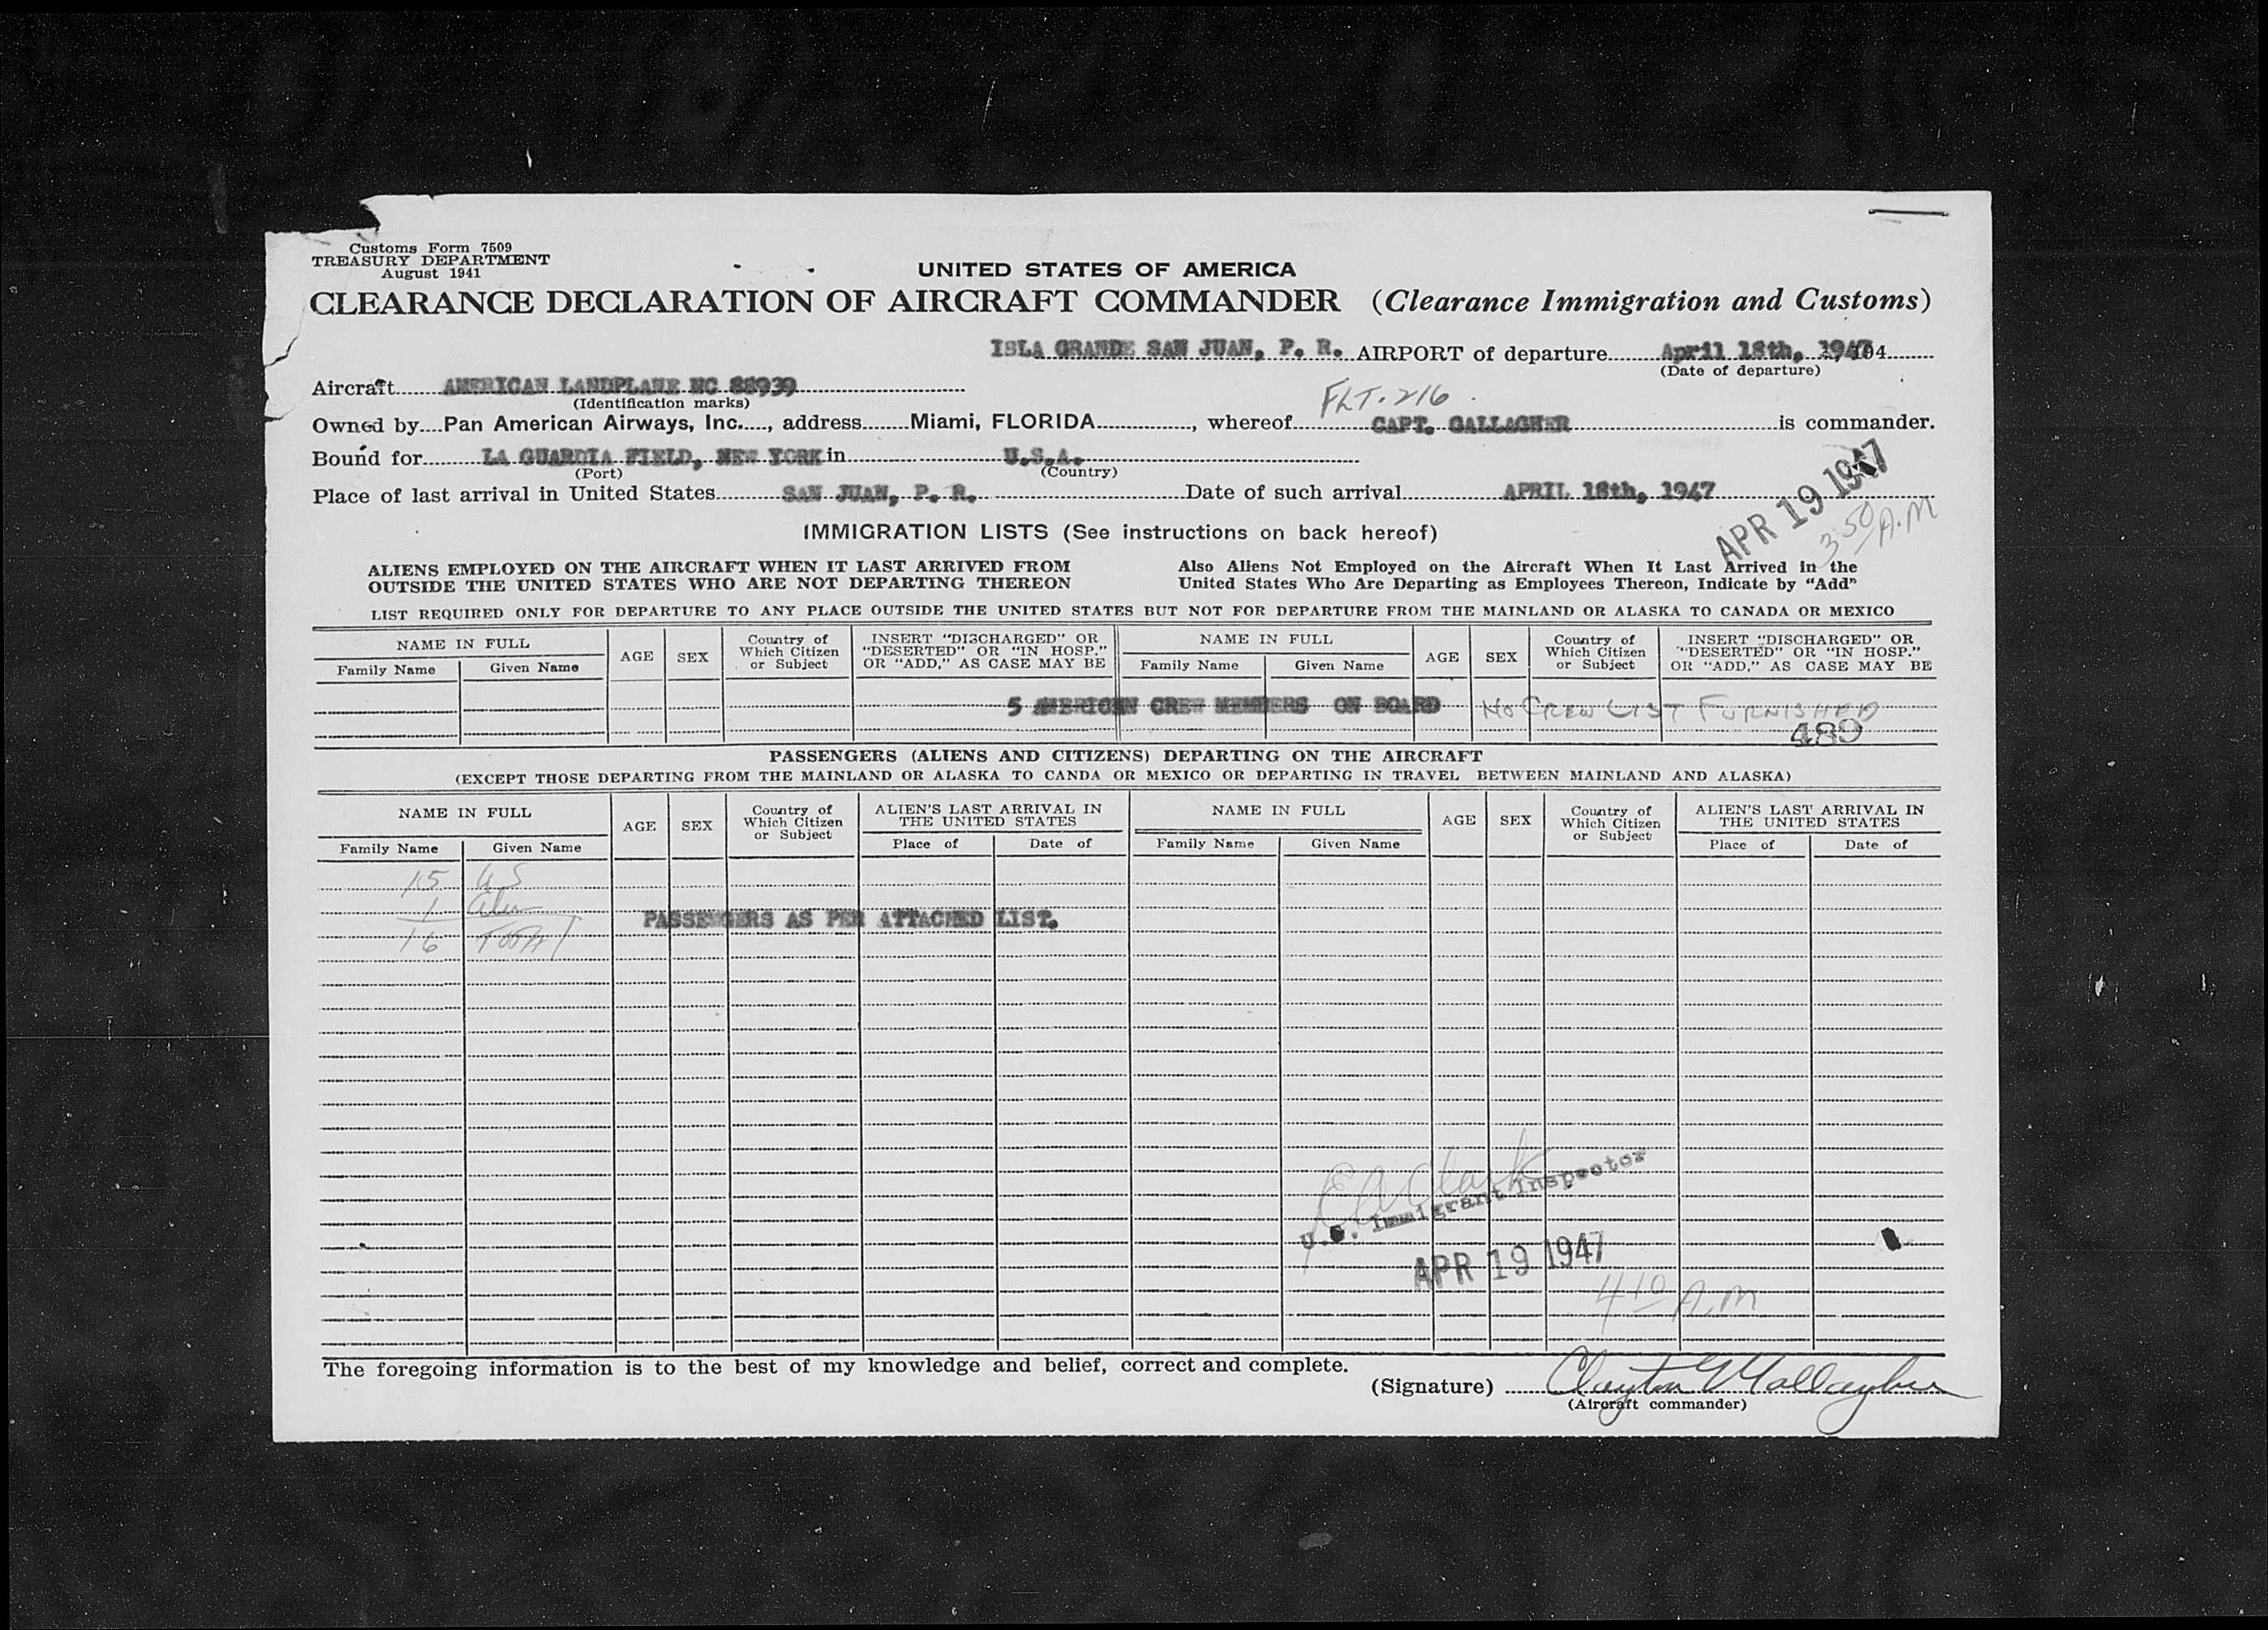 Customs Form 7509
TREASURY DEPARTMENT
August 1941
UNITED STATES OF AMERICA
CLEARANCE DECLARATION OF AIRCRAFT COMMANDER (Clearance Immigration and Customs)
ISLA GRANDE SAN JUAN, P. R. AIRPORT of departure April 18th, 1947
(Date of departure)
Aircraft AMERICAN LANDPLANE NC 88939
(Identification marks)
FLT. 216
Owned by Pan American Airways, Inc., address Miami, FLORIDA, whereof CAPT. GALLAGHER is commander.
Bound for LA GUARDIA FIELD, NEW YORK in U.S.A.
(Port) (Country)
Place of last arrival in United States SAN JUAN, P. R. Date of such arrival APRIL 18th, 1947
APR 19 1947
3 50 A.M
IMMIGRATION LISTS (See instructions on back hereof)
ALIENS EMPLOYED ON THE AIRCRAFT WHEN IT LAST ARRIVED FROM
OUTSIDE THE UNITED STATES WHO ARE NOT DEPARTING THEREON
Also Aliens Not Employed on the Aircraft When It Last Arrived in the
United States Who Are Departing as Employees Thereon, Indicate by "Add"
LIST REQUIRED ONLY FOR DEPARTURE TO ANY PLACE OUTSIDE THE UNITED STATES BUT NOT FOR DEPARTURE FROM THE MAINLAND OR ALASKA TO CANADA OR MEXICO
NAME IN FULL AGE SEX Country of Which Citizen or Subject INSERT "DISCHARGED" OR "DESERTED" OR "IN HOSP." OR "ADD," AS CASE MAY BE NAME IN FULL AGE SEX Country of Which Citizen or Subject INSERT "DISCHARGED" OR "DESERTED" OR "IN HOSP." OR "ADD," AS CASE MAY BE
Family Name Given Name Family Name Given Name
5 AMERICAN CREW MEMBERS ON BOARD NO CREW LIST FURNISHED
489
PASSENGERS (ALIENS AND CITIZENS) DEPARTING ON THE AIRCRAFT
(EXCEPT THOSE DEPARTING FROM THE MAINLAND OR ALASKA TO CANDA OR MEXICO OR DEPARTING IN TRAVEL BETWEEN MAINLAND AND ALASKA)
NAME IN FULL AGE SEX Country of Which Citizen or Subject ALIEN'S LAST ARRIVAL IN THE UNITED STATES NAME IN FULL AGE SEX Country of Which Citizen or Subject ALIEN'S LAST ARRIVAL IN THE UNITED STATES
Family Name Given Name Place of Date of Family Name Given Name Place of Date of
15 US
1 alien
PASSENGERS AS PER ATTACHED LIST.
16 TOTAL
EA Clark
U.S. Immigrant Inspector
APR 19 1947
4 10 A.M
The foregoing information is to the best of my knowledge and belief, correct and complete.
(Signature) Clayton Gallagher
(Aircraft commander)